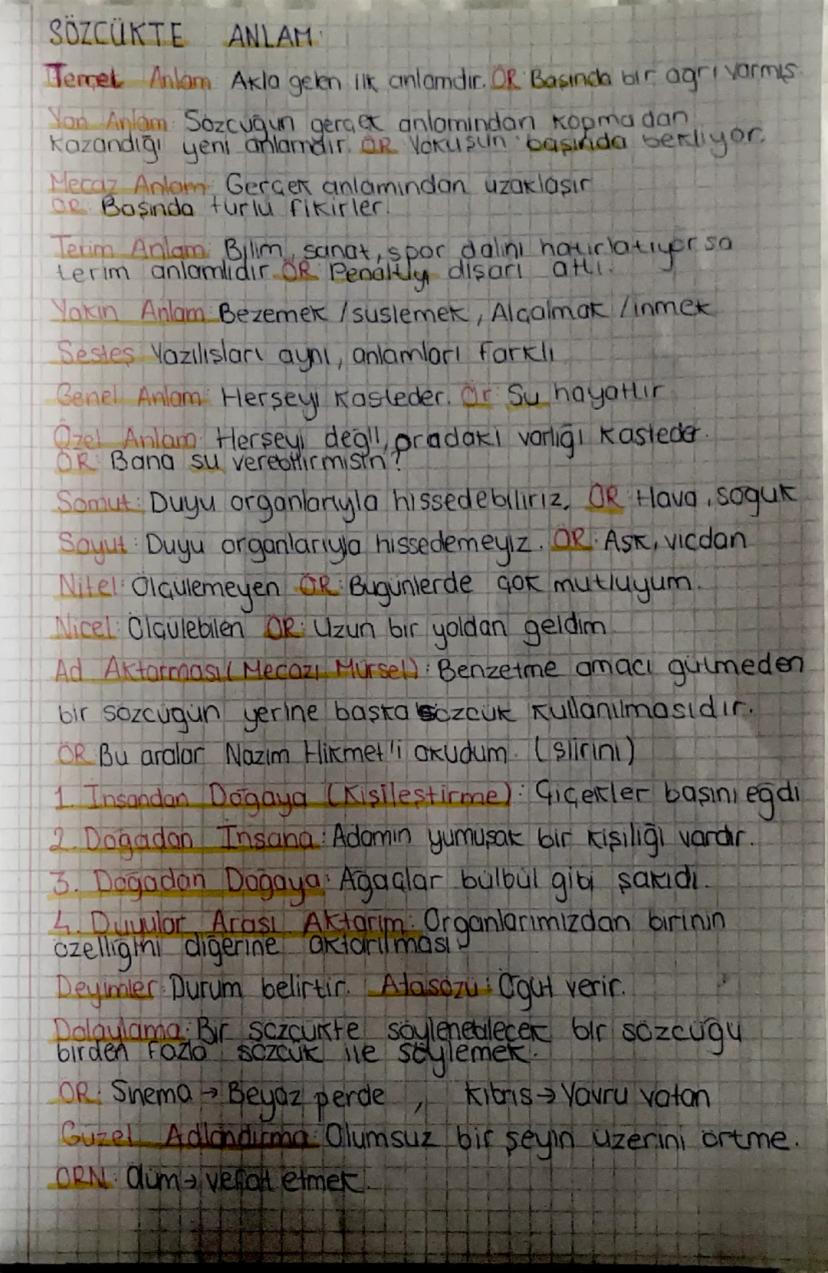 SÖZCÜKTE ANLAM:
Temel Anlam: Akla gelen ilk anlamdır. ÖR: Başında bir ağrı varmış
Yan Anlam: Sözcüğün gerçek anlamından kopmadan
kazandığı yeni anlamdır. ÖR: Yokuşun başında bekliyor.
Mecaz Anlam: Gerçek anlamından uzaklaşır
ÖR: Başında türlü fikirler.
Terim Anlam: Bilim, sanat, spor dalını hatırlatıyorsa
terim anlamlıdır. ÖR: Penaltıyı dışarı attı.
Yakın Anlam: Bezemek / süslemek, Alçalmak / inmek
Sesteş: Yazılışları aynı, anlamları farklı
Genel Anlam: Herşeyi kasteder. Ör: Su hayattır
Özel Anlam: Herşeyi değil, oradaki varlığı kasteder.
ÖR: Bana su verebilirmisin?
Somut: Duyu organlarıyla hissedebiliriz. ÖR: Hava, soğuk
Soyut: Duyu organlarıyla hissedemeyiz. ÖR: Aşk, vicdan
Nitel: Ölçülemeyen ÖR: Bugünlerde çok mutluyum.
Nicel: Ölçülebilen ÖR: Uzun bir yoldan geldim
Ad Aktarması (Mecazı Mürsel): Benzetme amacı gütmeden
bir sözcüğün yerine başka sözcük kullanılmasıdır.
ÖR: Bu aralar Nazım Hikmet'i okudum. (şiirini)
1. İnsandan Doğaya (Kişileştirme): Çiçekler başını eğdi
2. Doğadan İnsana: Adamın yumuşak bir kişiliği vardır.
3. Doğadan Doğaya: Ağaçlar bülbül gibi şakıdı.
4. Duyular Arası Aktarım: Organlarımızdan birinin
özelliğini diğerine aktarılması
Deyimler: Durum belirtir. Atasözü: Öğüt verir.
Dolaylama: Bir sözcükte söylenebilecek bir sözcüğü
birden fazla sözcük ile söylemek.
ÖR: Sinema → Beyaz perde, Kıbrıs → Yavru vatan
Güzel Adlandırma: Olumsuz bir şeyin üzerini örtme.
ÖRN: Ölüm → vefat etmek.